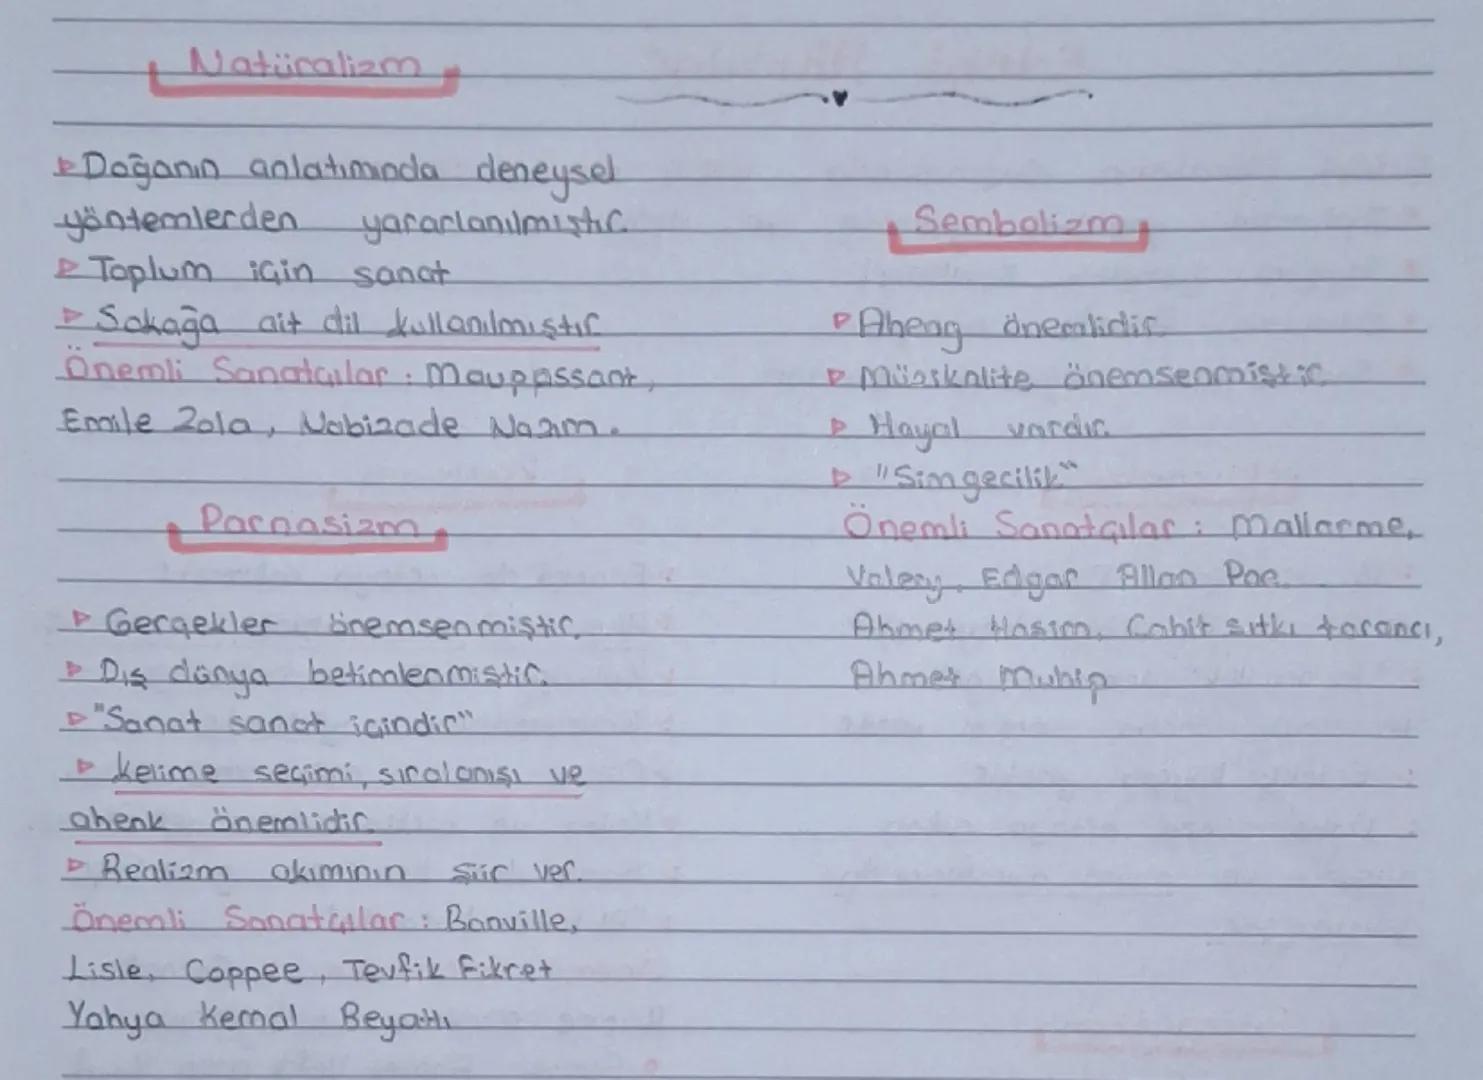 Natüralizm
▷ Doğanın anlatımında deneysel
yöntemlerden yararlanılmıştır.
▷ Toplum için sanat
▷ Sokağa ait dil kullanılmıştır
Önemli Sanatçılar : Mauppassant,
Emile Zola, Nabizade Nazım.
Parnasizm
▷ Gerçekler önemsenmiştir.
▷ Dış dünya betimlenmiştir.
▷ "Sanat sanat içindir"
▷ Kelime seçimi, sıralanışı ve
ahenk önemlidir.
▷ Realizm akımının şiir ver.
Önemli Sanatçılar : Banville,
Lisle, Coppee, Tevfik Fikret
Yahya Kemal Beyatlı
Sembolizm
▷ Aheng önemlidir.
▷ Müziskalite önemsenmiştir.
▷ Hayal vardır.
▷ "Simgecilik"
Önemli Sanatçılar : Mallarme,
Valery, Edgar Allan Poe.
Ahmet Haşim, Cahit sıtkı tarancı,
Ahmet Muhip